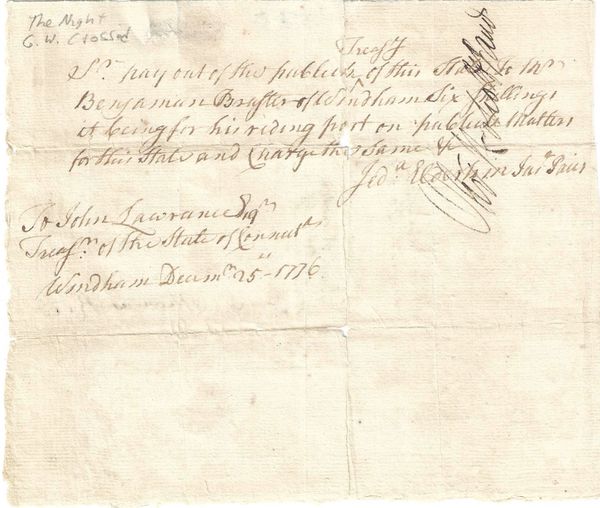 The Night
G. W. Crossed
Treasy
Sr. pay out of the publick of this State to Mr.
Benjaman Braster of Windham Six Shillings
it being for his riding post on publick Matters
for this State and Charge the same &
Jedn. Elderkin Jus. Pais
To John Lawrance Esqr.
Treasr. of the State of Connectt.
Windham Decemr. 25th 1776